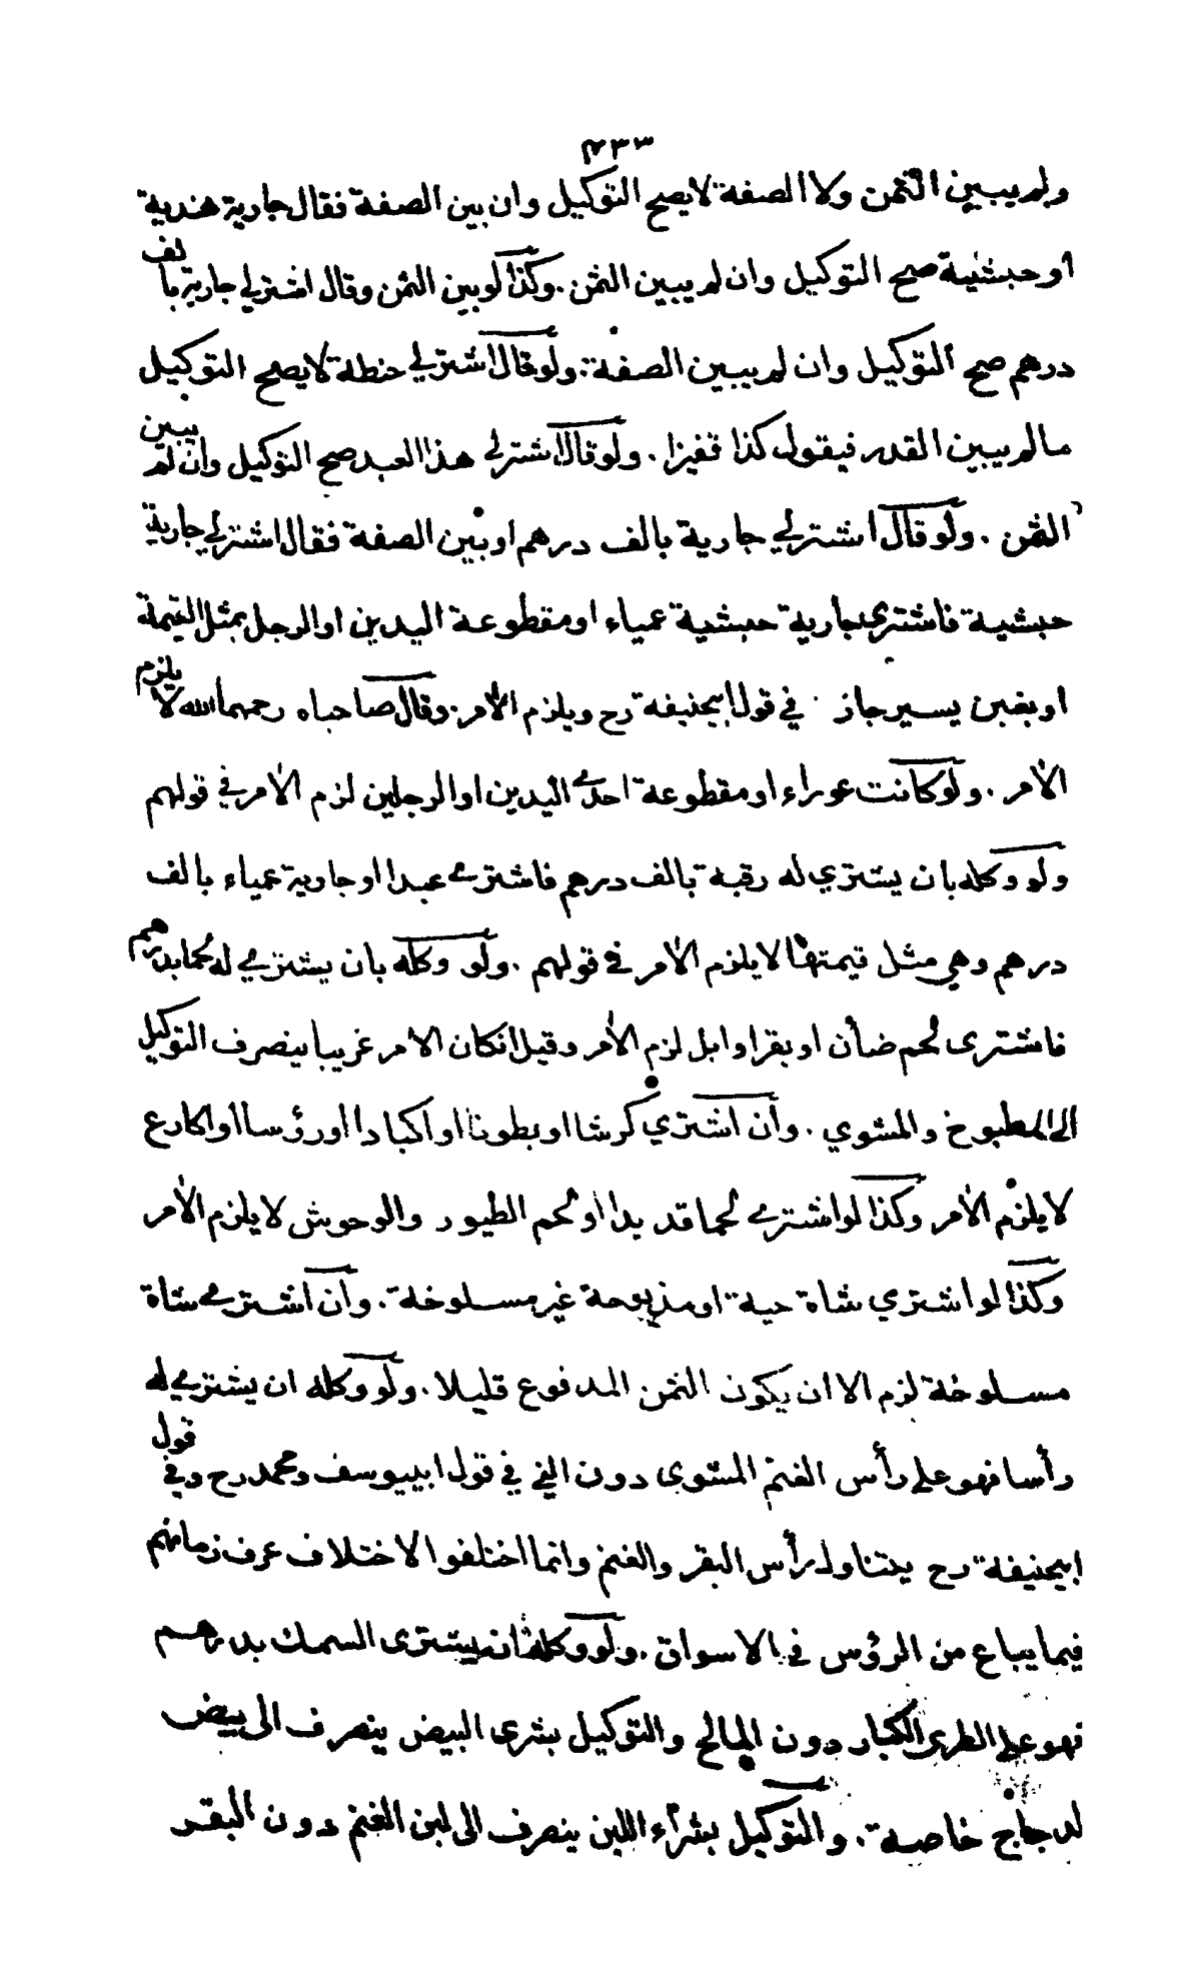 ٤٣٣
ولم يبين الثمن ولا الصفة لايصح التوكيل وان بين الصفة فقال جارية هندية
او حبشية صح التوكيل وان لم يبين الثمن . وكذا لوبين الثمن وقال اشتر لي جارية بالف
درهم صح التوكيل وان لم يبين الصفة . ولوقال اشتر لي حنطة لا يصح التوكيل
مالم يبين القدر فيقول كذا قفيزا . ولوقال اشتر لي هذا العبد صح التوكيل وان لم يبين
الثمن . ولوقال اشتر لي جارية بالف درهم او بين الصفة فقال اشتر لي جارية
حبشية فاشترى جارية حبشية عمياء او مقطوعة اليدين او الرجل بمثل القيمة
او بغبن يسير جاز في قول ابيحنيفة رح ويلزم الأمر . وقال صاحباه رحمهما الله لا يلزم
الأمر . ولو كانت عوراء او مقطوعة احدى اليدين او الرجلين لزم الأمر في قولهم
ولو وكله بان يشتري له رقبة بالف درهم فاشترى عبدا او جارية عمياء بالف
درهم وهي مثل قيمتها لا يلزم الأمر في قولهم . ولو وكله بان يشتري له لحما بدرهم
فاشترى لحم ضأن او بقر او ابل لزم الأمر وقيل انكان الامر غريبا ينصرف التوكيل
الى المطبوخ والمشوي . وان اشترى كرشا او بطونا او اكبادا اورؤسا او اكارع
لا يلزم الأمر وكذا لو اشترى لحما قديدا او لحم الطيور والوحوش لا يلزم الأمر
وكذا لو اشترى شاة حية او مذبوحة غير مسلوخة . وان اشترى شاة
مسلوخة لزم الا ان يكون الثمن المدفوع قليلا . ولو وكله ان يشتري له
رأسا فهو على رأس الغنم المشوى دون الني في قول ابييوسف ومحمد رح وفي قول
ابيحنيفة رح يتناول رأس البقر والغنم وانما اختلفوا لاختلاف عرف زمانهم
فيما يباع من الرؤس في الاسواق . ولو وكله ان يشترى السمك بدرهم
فهو على الطري الكبار دون المالح والتوكيل بشرى البيض ينصرف الى بيض
لدجاج خاصة . والتوكيل بشرآء اللبن ينصرف الى لبن الغنم دون البقر